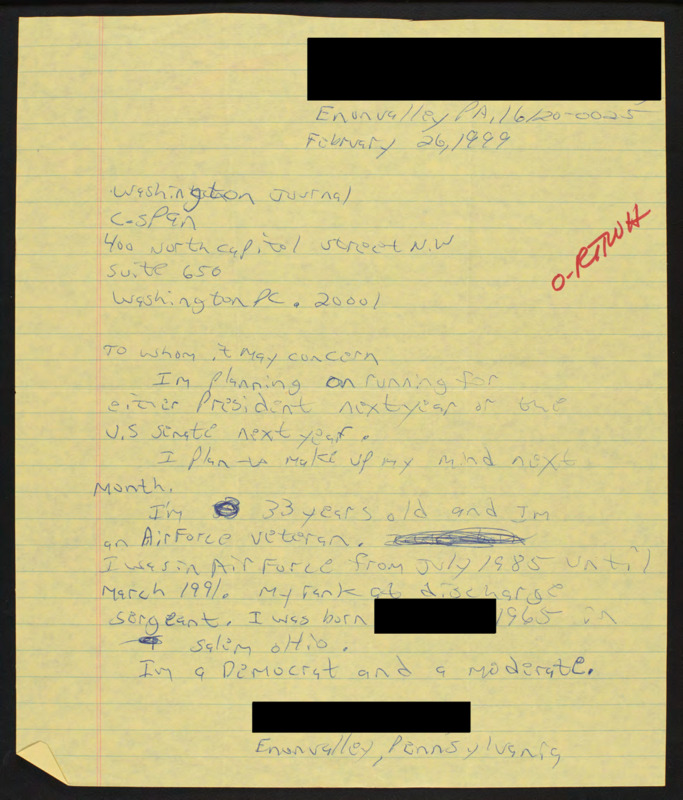 Enonvalley PA, 16120-0025
February 26, 1999
Washington Journal
C-SPAN
400 North Capitol Street N.W
Suite 650
Washington DC. 20001
O-RTWH
To whom it May concern
Im planning on running for
either President next year or the
U.S Senate next year.
I plan to make up my mind next
month.
I'm 33 years old and Im
an AirForce veteran.
I was in Air Force from July 1985 until
March 1991. My rank at discharge
sergeant. I was born 1965 in
Salem Ohio.
Im a Democrat and a moderate.
Enonvalley, Pennsylvania